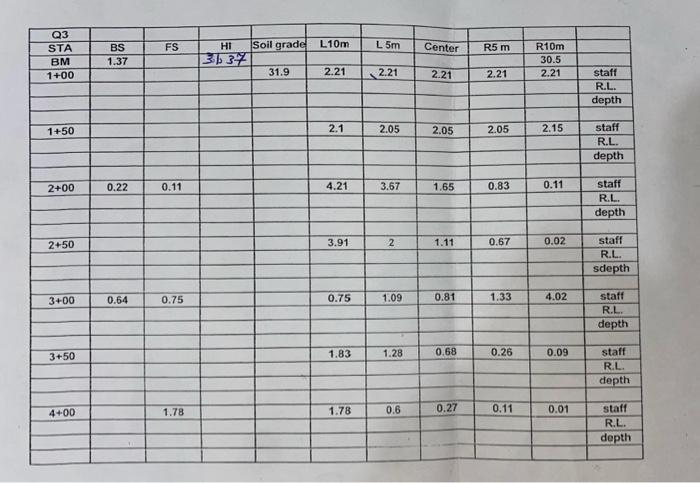 Q3
STA BS FS HI Soil grade L10m L 5m Center R5 m R10m
BM 1.37 3b 37 30.5
1+00 31.9 2.21 2.21 2.21 2.21 2.21 staff
R.L.
depth
1+50 2.1 2.05 2.05 2.05 2.15 staff
R.L.
depth
2+00 0.22 0.11 4.21 3.67 1.65 0.83 0.11 staff
R.L.
depth
2+50 3.91 2 1.11 0.67 0.02 staff
R.L.
sdepth
3+00 0.64 0.75 0.75 1.09 0.81 1.33 4.02 staff
R.L.
depth
3+50 1.83 1.28 0.68 0.26 0.09 staff
R.L.
depth
4+00 1.78 1.78 0.6 0.27 0.11 0.01 staff
R.L.
depth